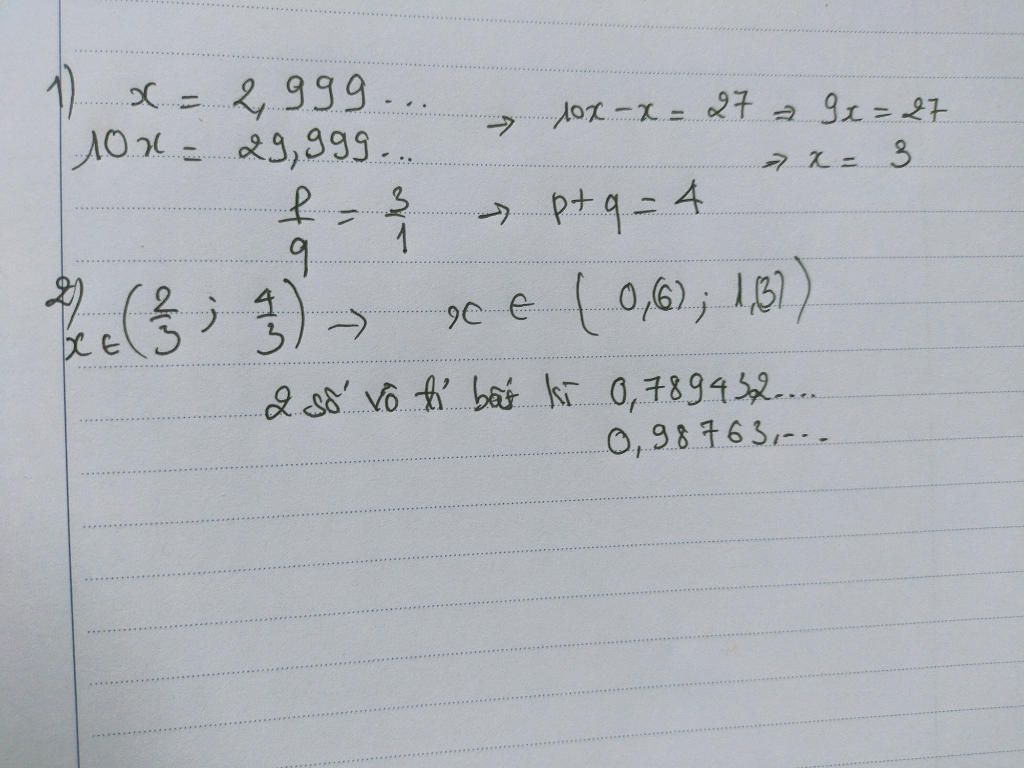 1) x = 2,999... → 10x - x = 27 ⇒ 9x = 27
10x = 29,999... ⇒ x = 3
p/q = 3/1 → p+q = 4
2) x ∈ (2/3 ; 4/3) → x ∈ (0,(6) ; 1,(3))
2 số vô tỉ bất kì 0,789432....
0,98763....